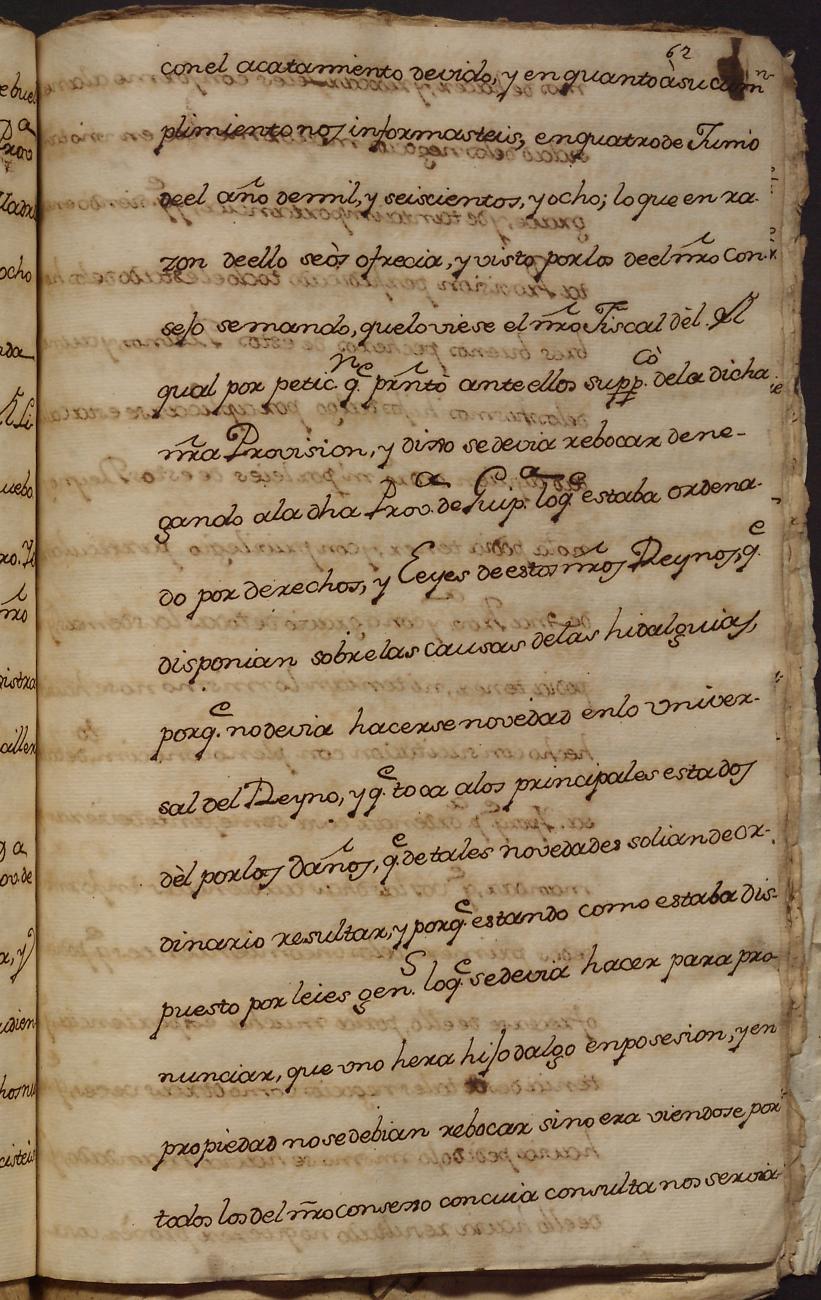 62
con el acatamiento devido, y en quanto à su cum
plimiento nos informasteis, en quatro de Junio
de el año de mil, y seiscientos, y ocho; lo que en ra-
zon de ello se òs ofrecia, y visto por los de el nr̃o Con-
sejo se mando, que lo viese el nr̃o Fiscal dèl. El
qual por petic.ⁿ q.ᵉ prn̄tò ante ellos supp.ᶜò de la dicha
nr̃a Provision, y dixo se devia rebocar dene-
gando a la dha Prov.ᵃ de Guip.ᵃ lo q.ᵉ estaba ordena-
do por derechos, y Leyes de estos nr̃os Reynos, q.ᵉ
disponian sobre las causas de las hidalguias,
porq.ᵉ no devia hacerse novedad en lo univer-
sal del Reyno, y q.ᵉ toca a los principales estados
dèl por los daños, q.ᵉ de tales novedades solian de or-
dinario resultar, y porq.ᵉ estando como estaba dis-
puesto por leies gen.ˢ lo q.ᵉ se devia hacer para pro-
nunciar, que uno hera hijodalgo en posesion, y en
propiedad no se debian rebocar sino era viendose por
todos los del nr̃o consexo con cuia consulta nos servia-